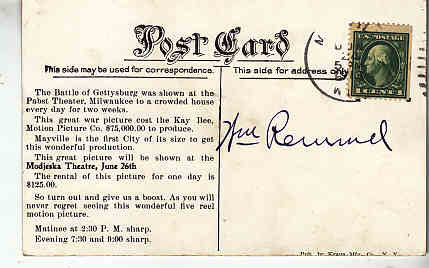 Post Card
This side may be used for correspondence.
This side for address only
U.S. POSTAGE
1 CENT 1
The Battle of Gettysburg was shown at the
Pabst Theater, Milwaukee to a crowded house
every day for two weeks.
This great war picture cost the Kay Bee,
Motion Picture Co. $75,000.00 to produce.
Mayville is the first City of its size to get
this wonderful production.
This great picture will be shown at the
Modjeska Theatre, June 26th
The rental of this picture for one day is
$125.00.
So turn out and give us a boost. As you will
never regret seeing this wonderful five reel
motion picture.
Matinee at 2:30 P. M. sharp.
Evening 7:30 and 9:00 sharp.
Wm Remmel
Pub. by Kraus Mfg. Co., N. Y.